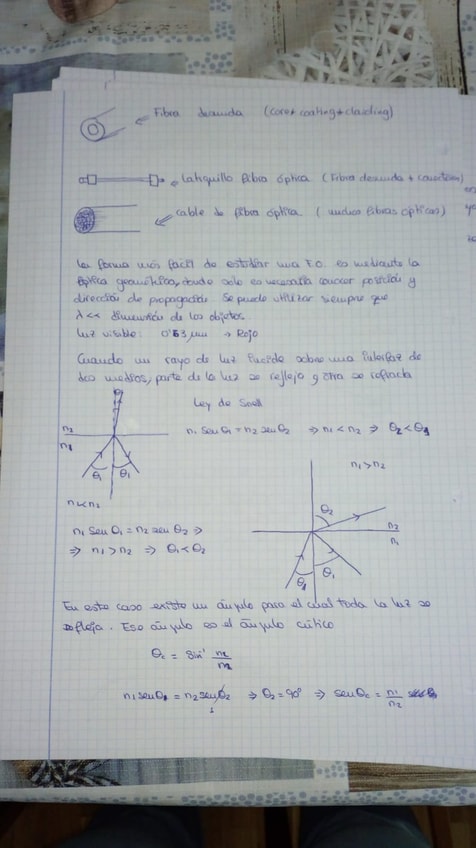 Fibra desnuda (core+coating+cladding)
Latiguillo fibra óptica (Fibra desnuda + conectores)
cable de fibra óptica (muchas fibras ópticas)
La forma más fácil de estudiar una F.O. es mediante la
óptica geométrica, donde solo es necesario conocer posición y
dirección de propagación. Se puede utilizar siempre que
λ << dimensión de los objetos.
Luz visible: 0'63 µm → Rojo
Cuando un rayo de luz incide sobre una interfaz de
dos medios, parte de la luz se refleja y otra se refracta
Ley de Snell
n₁ sen θ₁ = n₂ sen θ₂ ⇒ n₁ < n₂ ⇒ θ₂ < θ₁
n₂
n₁
θ₁ θ₁
n₁ < n₂
n₁ > n₂
θ₂
n₂
n₁
θ₁ θ₁
n₁ sen θ₁ = n₂ sen θ₂ ⇒
⇒ n₁ > n₂ ⇒ θ₁ < θ₂
En este caso existe un ángulo para el cual toda la luz se
refleja. Ese ángulo es el ángulo crítico
θc = sin⁻¹ n₂/n₁
n₁ sen θ₁ = n₂ sen θ₂ ⇒ θ₂ = 90° ⇒ sen θc = n₁/n₂
1